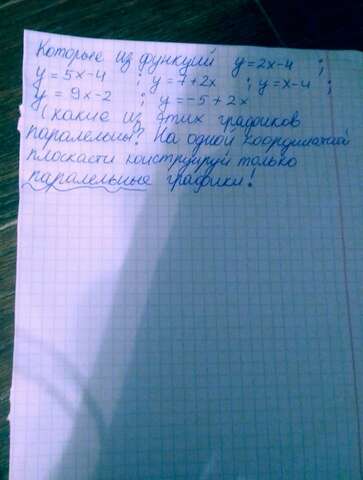 Которые из функций y=2x-4 ;
y=5x-4 ; y=7+2x ; y=x-4 ;
y=9x-2 ; y=-5+2x
(какие из этих графиков
паралельны? На одной координатной
плоскасти конструируй только
паралельные графики!